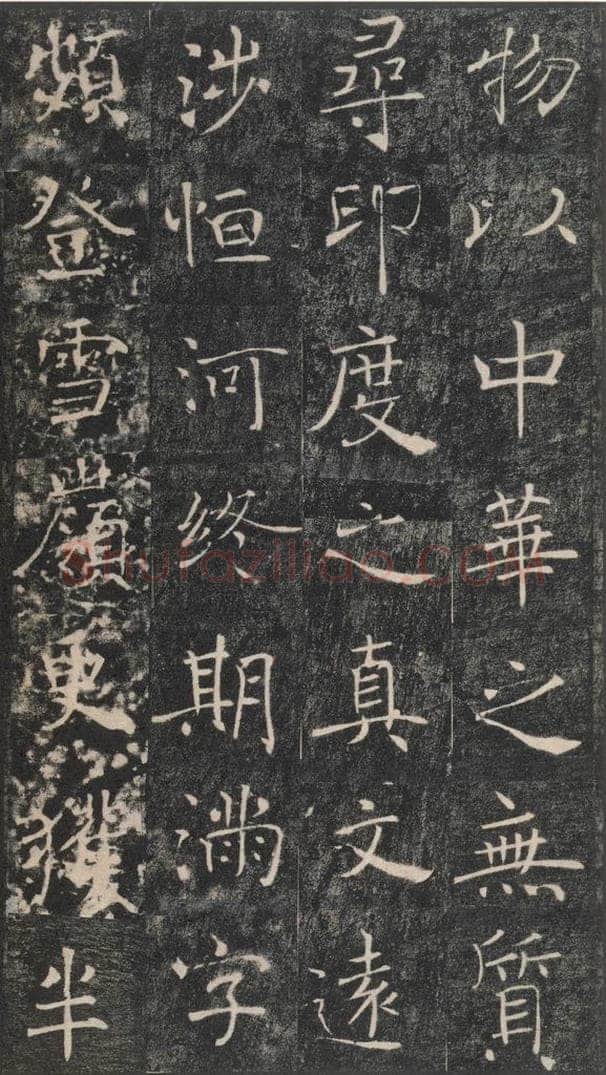 物以中華之無質
尋印度之真文遠
涉恒河終期滿字
頻登雪巖更獲半
Shufaziliao.COM